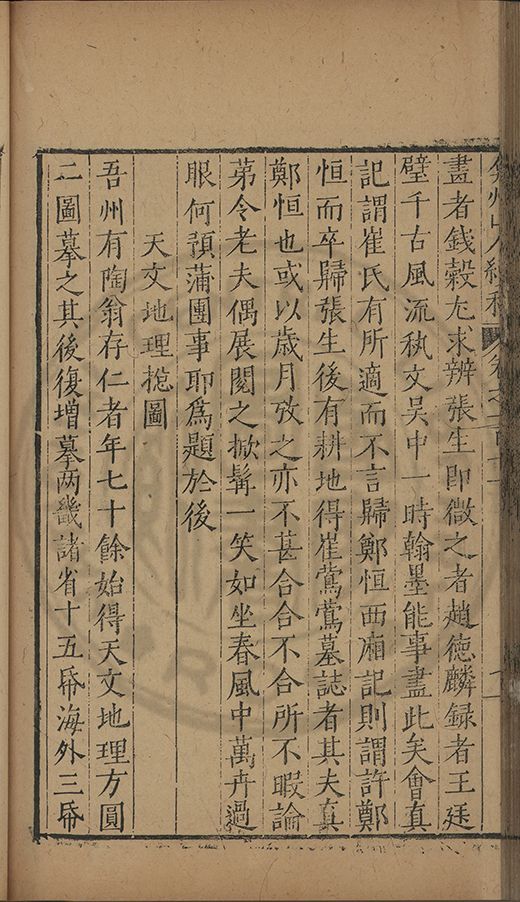 弇州山人續稿 卷之一百七十
畫者錢穀尤求辨張生即微之者趙德麟録者王廷
璧千古風流秇文吳中一時翰墨能事盡此矣會真
記謂崔氏有所適而不言歸鄭恒西厢記則謂許鄭
恒而卒歸張生後有耕地得崔鶯鶯墓誌者其夫真
鄭恒也或以歲月攷之亦不甚合合不合所不暇論
苐令老夫偶展閱之掀髯一笑如坐春風中萬卉過
眼何須蒲團事耶爲題於後
天文地理揔圖
吾州有陶翁存仁者年七十餘始得天文地理方圓
二圖摹之其後復增摹两畿諸省十五帋海外三帋